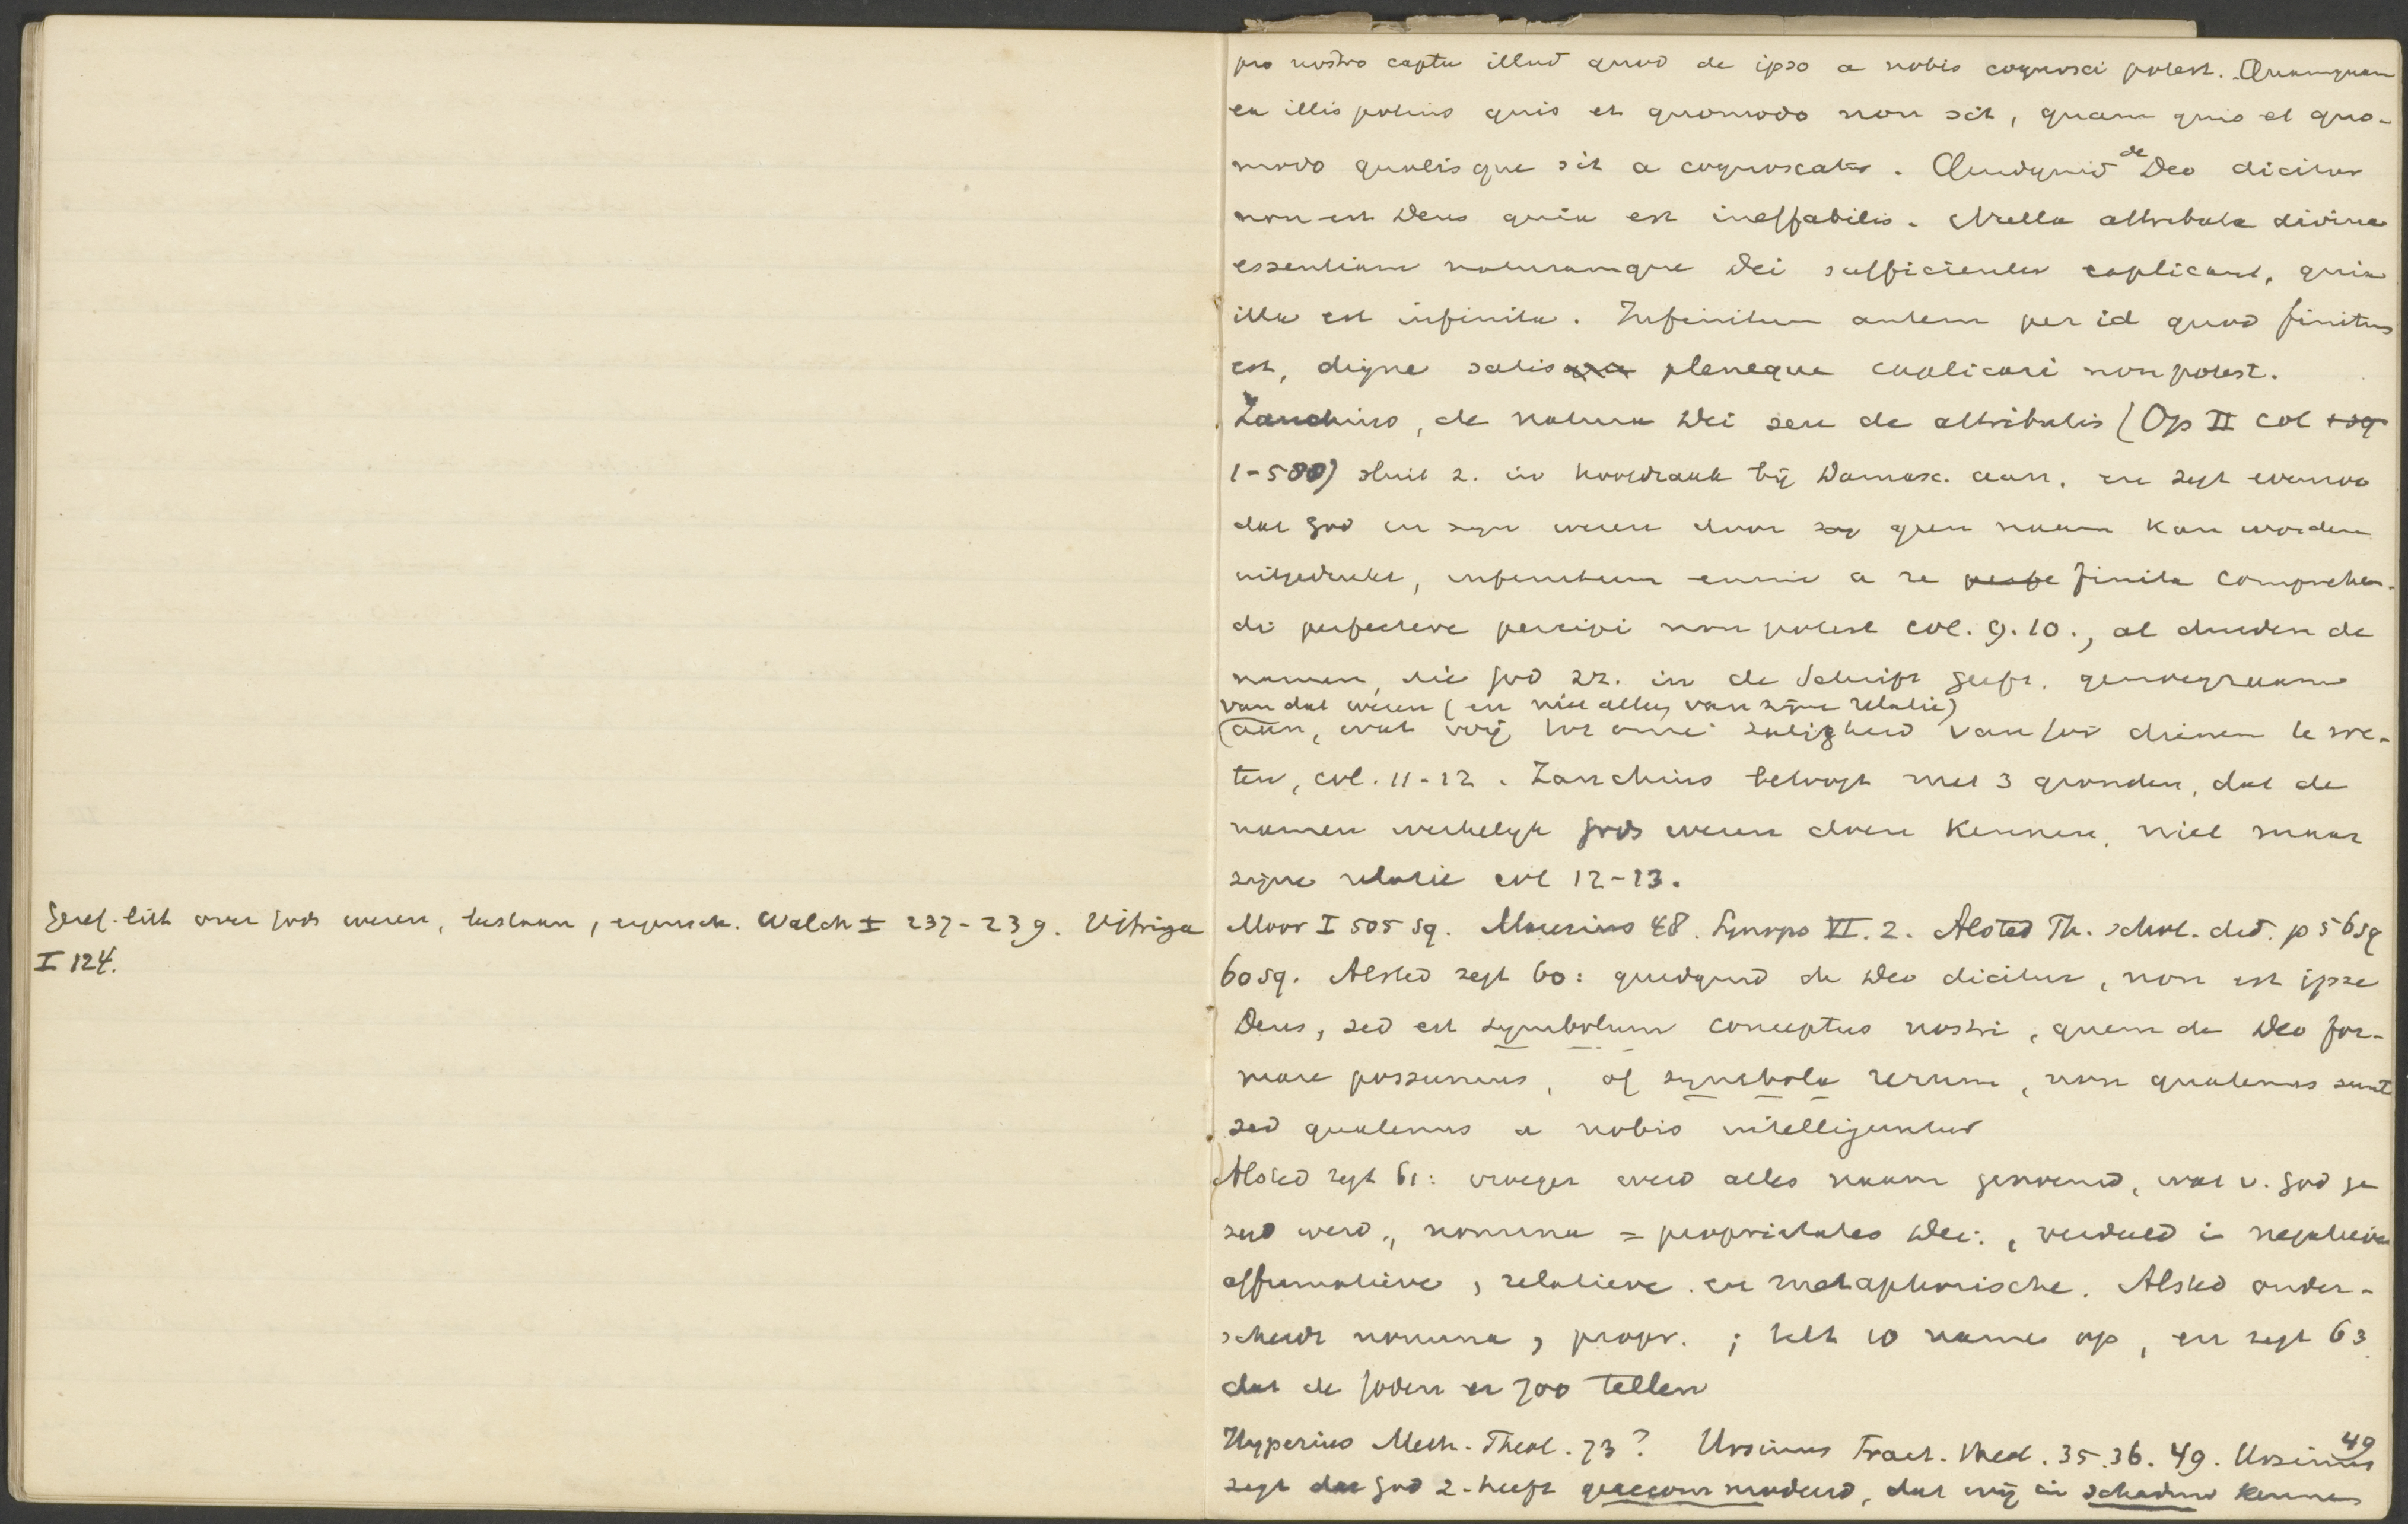 Geref. litt over Gods wezen, bestaan, eigensch. Walch I 237-239. Vitringa
I 124.
pro nostro captu illud quod de ipso a nobis cognosci potest. Quamquam
ex illis potius quis et quomodo non sit, quam quis et quo-
modo qualisque sit a cognoscatur. Quidquid de Deo dicitur
non est Deus quia est ineffabilis. Nulla attributa divina
essentiam naturamque Dei sufficienter explicant, quia
illa est infinita. Infinitum autem per id quod finitum
est, digne satis pleneque explicari non potest.
Zanchius, de natura Dei seu de attributis (Op II col
1-580) sluit z. in hoofdzaak bij Damasc. aan, en zegt evenzoo
dat God in zijn wezen door geen naam kan worden
uitgedrukt, infinitum enim a re finita comprehen-
di perfecteve percipi non potest col. 9.10., al duiden de
namen, die God zr. in de Schrift geeft, genoegzaam
van dat wezen (en niet alleen van zijne relatie)
aan, wat wij tot onze zaligheid van God dienen te we-
ten, col. 11-12. Zanchius betoogt met 3 gronden, dat de
namen werkelijk Gods wezen doen kennen, niet maar
zijne relatie col 12-13.
Moor I 505 sq. Maresius 48. Synops VI. 2. Alsted Th. schol. did. p 56 sq
60 sq. Alsted zegt 60: quidquid de Deo dicitur, non est ipse
Deus, sed est symbolum conceptus nostri, quem de Deo for-
mare possumus, of symbola rerum, non quatenus sunt
sed quatenus a nobis intelliguntur
Alsted zegt 61: vroeger werd alles naam genoemd, wat v. God ge
zegd werd, nomina = proprietates Dei, verdeeld in negatieve
affirmatieve, relatieve en metaphorische. Alsted onder-
scheidt nomina, propr. ; telt 10 names op, en zegt 63
dat de Joden er 700 tellen
Hyperius Meth. Theol. 73? Ursinus Tract. theol. 35.36.49. Ursinus 49
zegt dat God z. heeft geaccommodeerd, dat wij in schaduw kennen